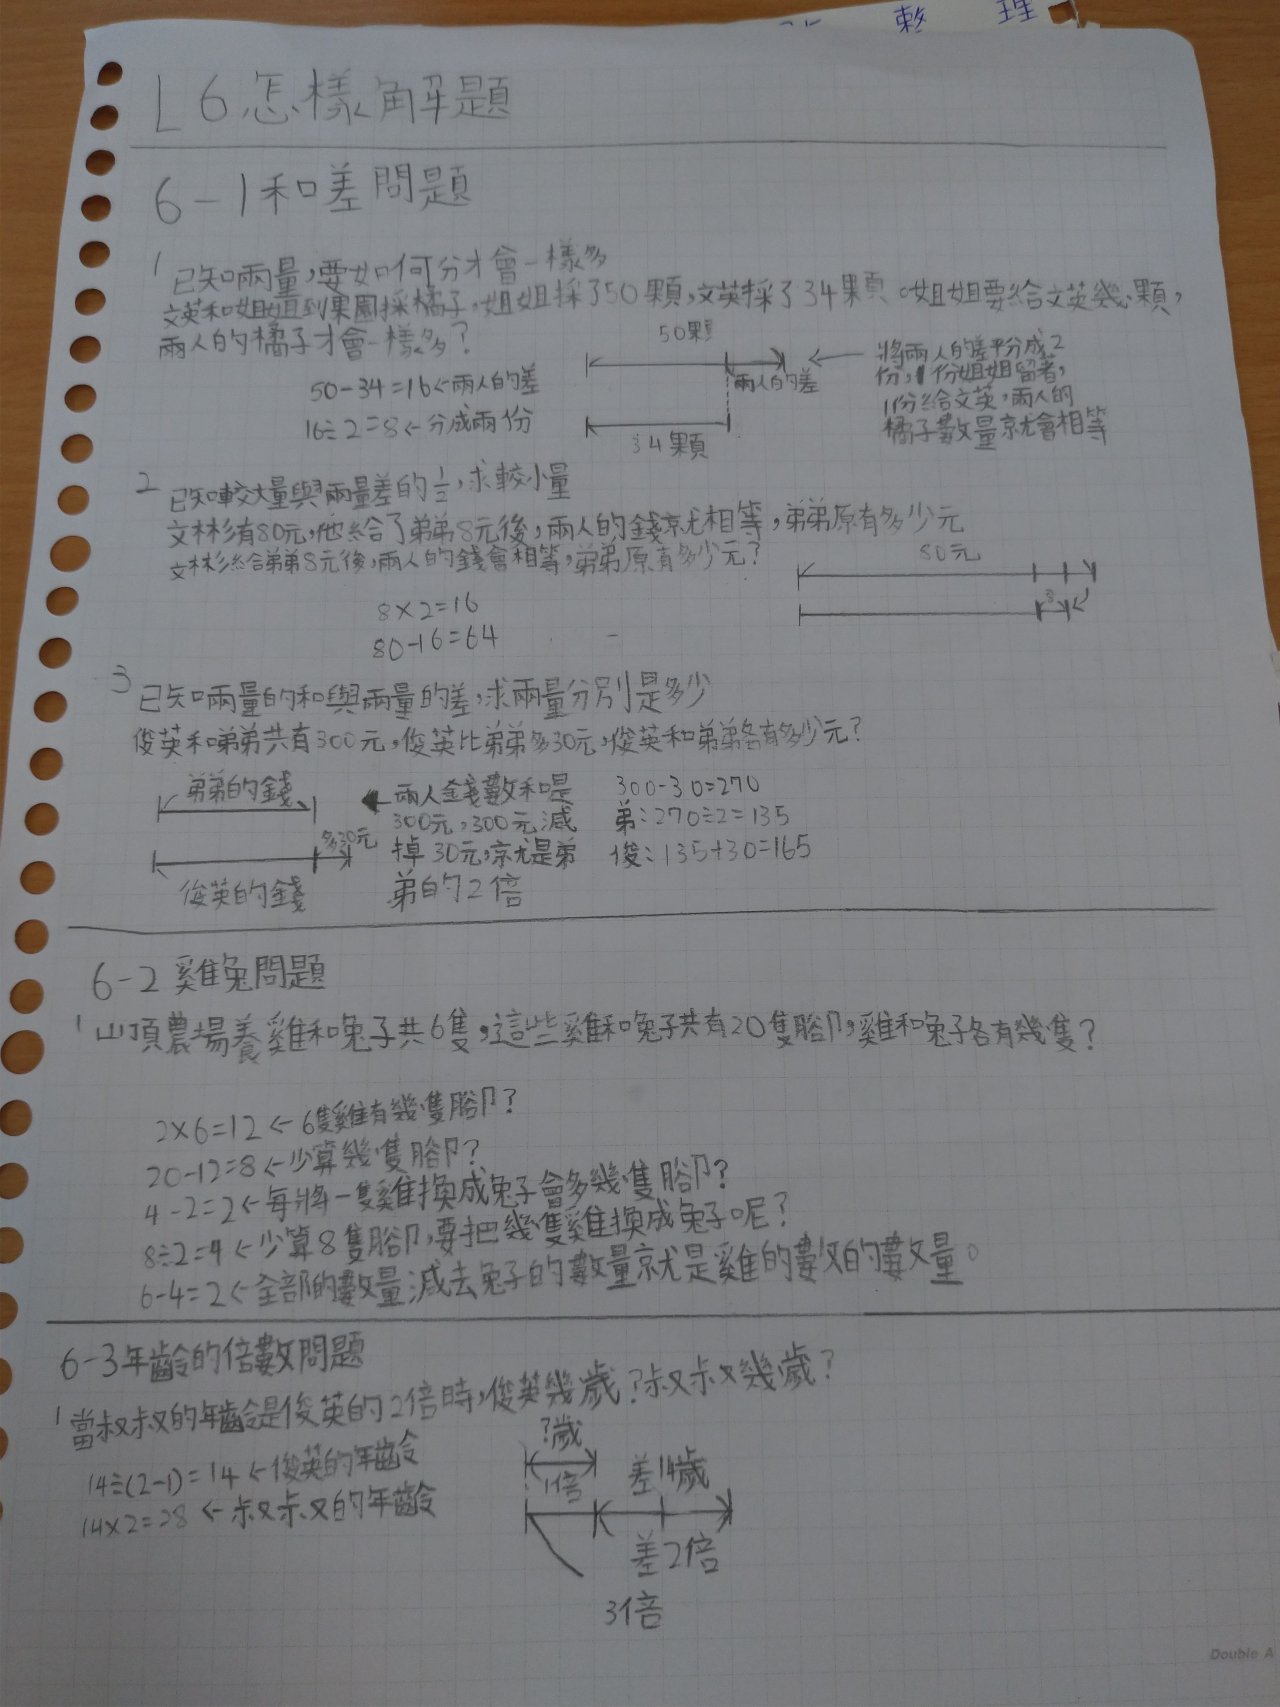 整理
L6怎樣解題
6-1和差問題
1 已知兩量,要如何分才會一樣多
文英和姐姐到果園採橘子,姐姐採了50顆,文英採了34顆。姐姐要給文英幾顆,
兩人的橘子才會一樣多?
50顆
50-34=16←兩人的差
兩人的差
16÷2=8←分成兩份
34顆
將兩人的差平分成2
份,1份姐姐留著,
1份給文英,兩人的
橘子數量就會相等
2 已知較大量與兩量差的1/2,求較小量
文彬有80元,他給了弟弟8元後,兩人的錢就相等,弟弟原有多少元
文彬給弟弟8元後,兩人的錢會相等,弟弟原有多少元?
80元
8
8×2=16
80-16=64
3 已知兩量的和與兩量的差,求兩量分別是多少
俊英和弟弟共有300元,俊英比弟弟多30元,俊英和弟弟各有多少元?
弟弟的錢
多30元
俊英的錢
兩人錢數和是
300元,300元減
掉30元,就是弟
弟的2倍
300-30=270
弟:270÷2=135
俊:135+30=165
6-2雞兔問題
1 山頂農場養雞和兔子共6隻,這些雞和兔子共有20隻腳,雞和兔子各有幾隻?
2×6=12←6隻雞有幾隻腳?
20-12=8←少算幾隻腳?
4-2=2←每將一隻雞換成兔子會多幾隻腳?
8÷2=4←少算8隻腳,要把幾隻雞換成兔子呢?
6-4=2←全部的數量減去兔子的數量就是雞的數的數量。
6-3年齡的倍數問題
1 當叔叔的年齡是俊英的2倍時,俊英幾歲?叔叔幾歲?
14÷(2-1)=14←俊英的年齡
14×2=28←叔叔的年齡
?歲
1倍
差14歲
差2倍
3倍
Double A